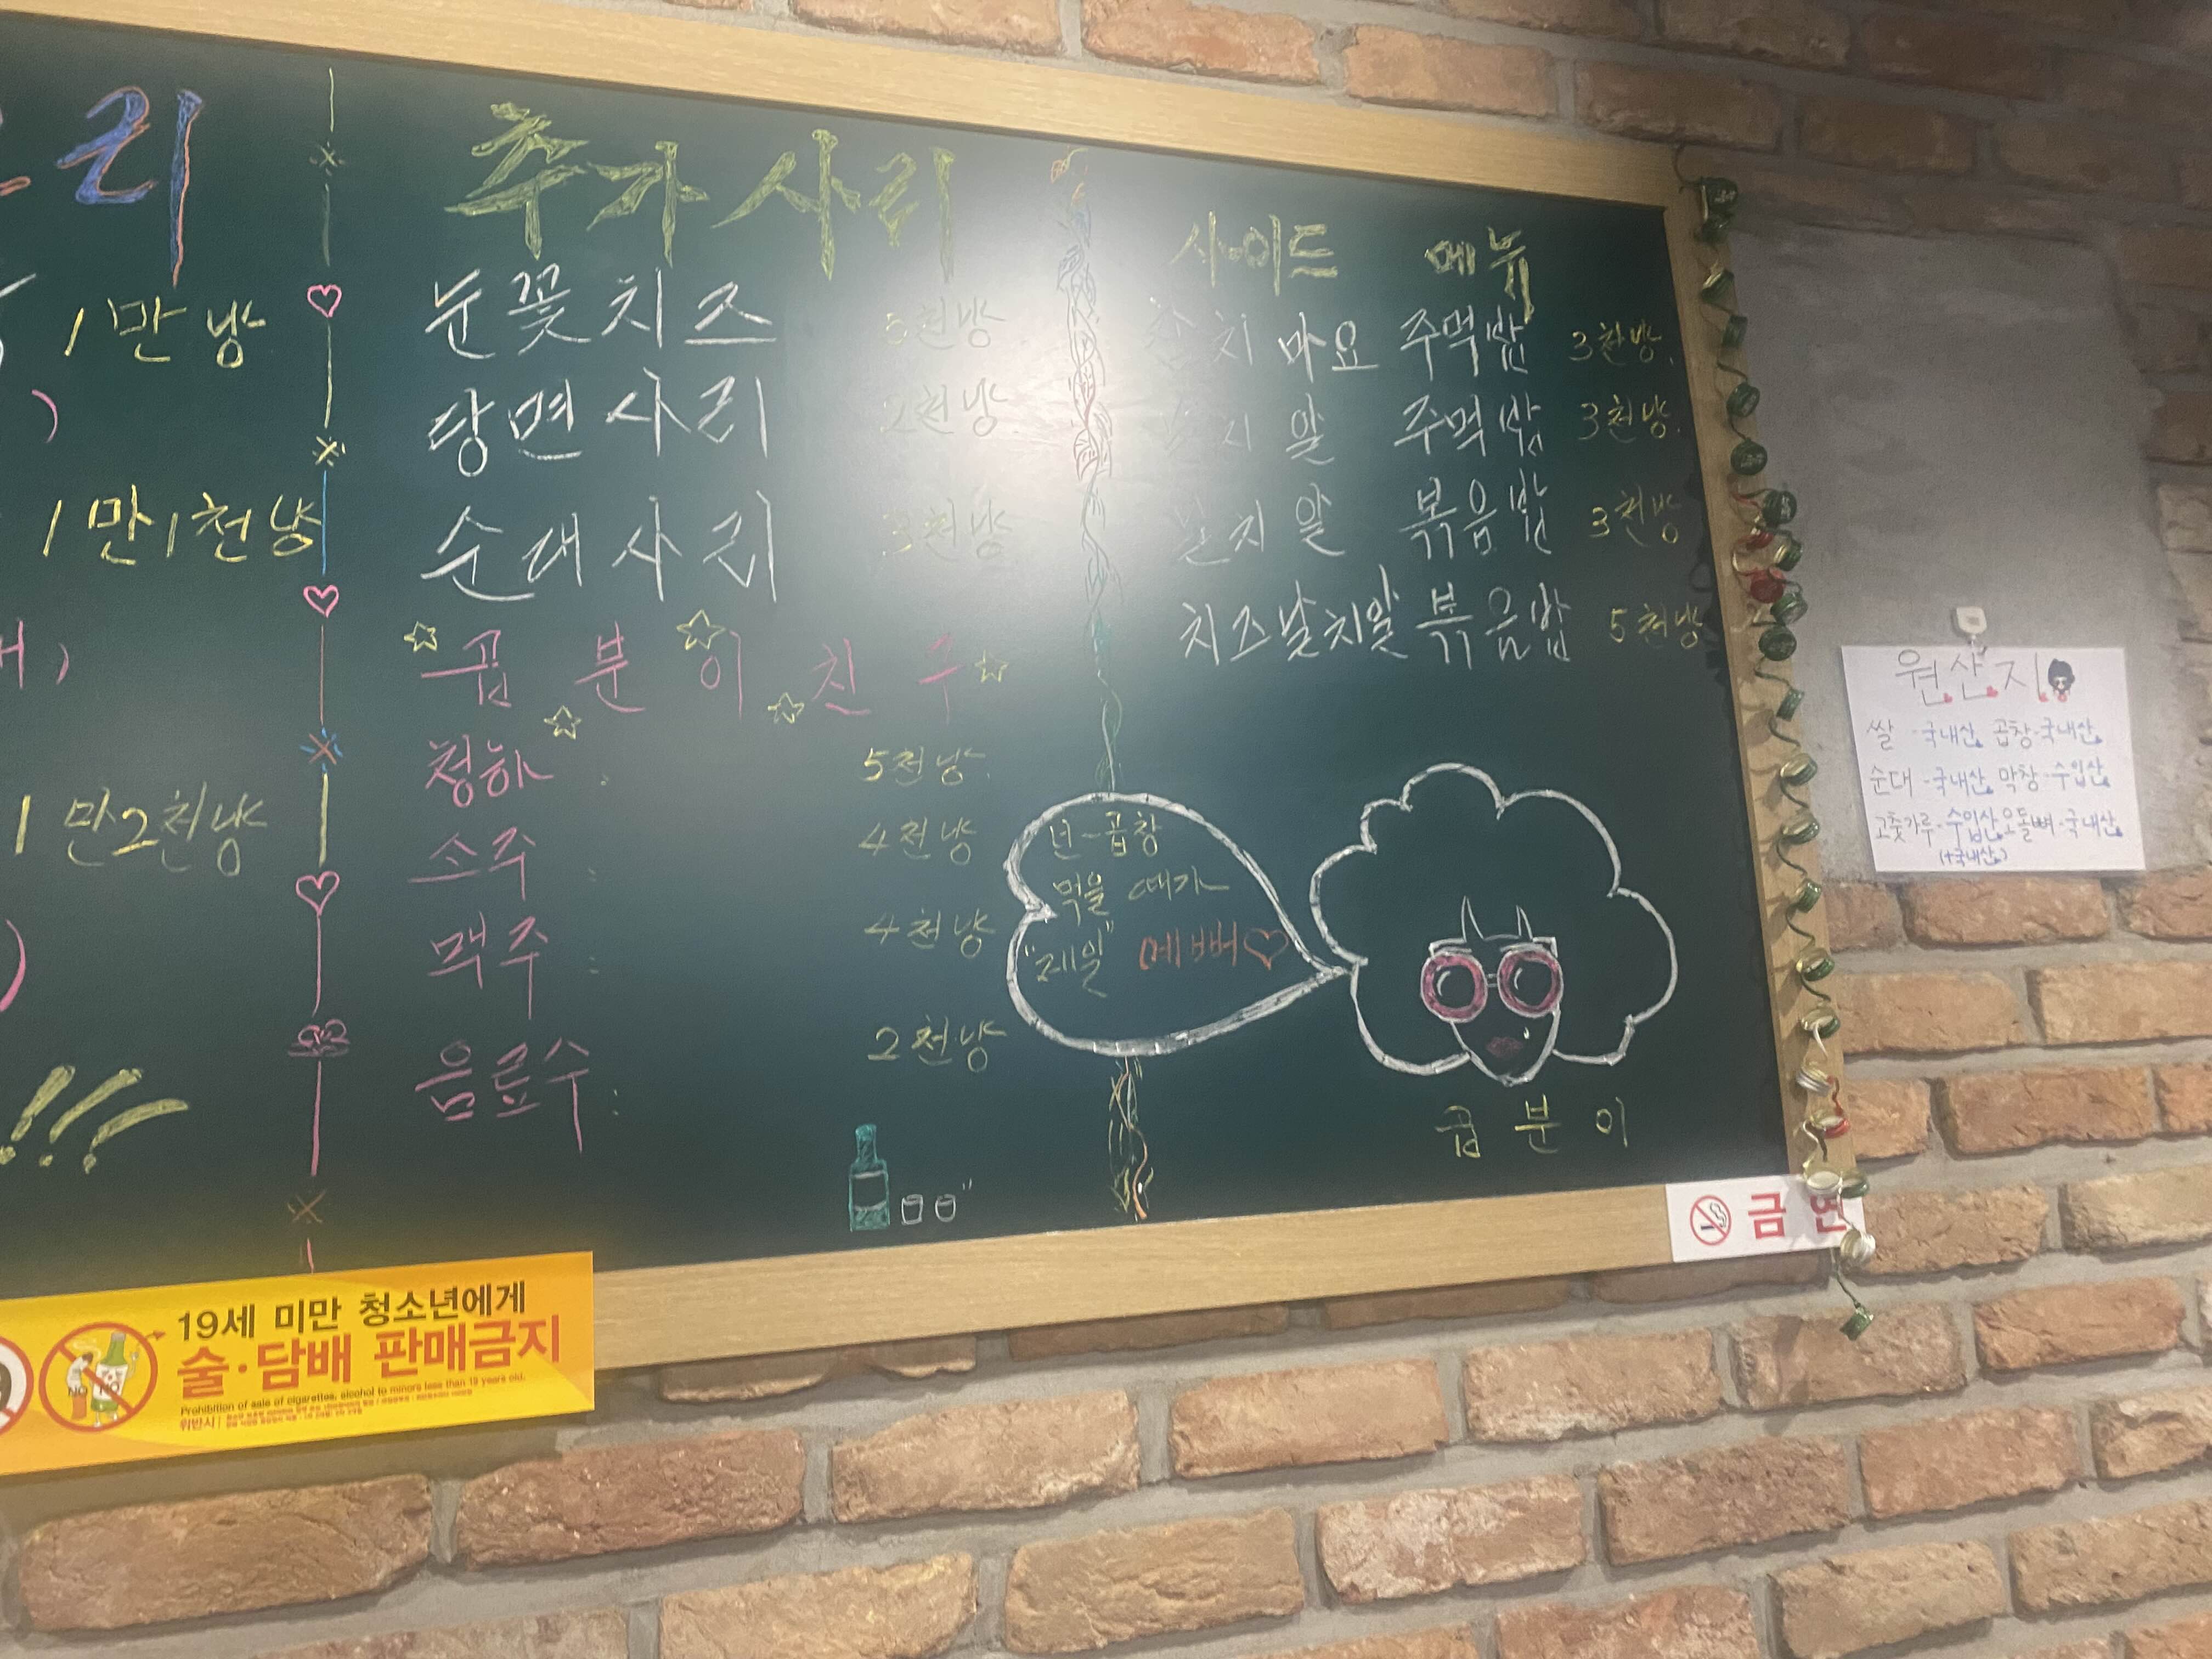 리
1만냥
)
1만1천냥
)
1만2천냥
)
!!!
추가사리
눈꽃치즈 5천냥
당면사리 2천냥
순대사리 3천냥
곱분이친구
청하 : 5천냥
소주 : 4천냥
맥주 : 4천냥
음료수 : 2천냥
사이드 메뉴
참치 마요 주먹밥 3천냥
날치 알 주먹밥 3천냥
날치 알 볶음밥 3천냥
치즈날치알볶음밥 5천냥
넌-곱창
먹을 때가
"제일" 예뻐♡
곱분이
원산지
쌀-국내산 곱창-국내산
순대-국내산 막창-수입산
고춧가루-수입산 오돌뼈-국내산
(+국내산)
금연
19세 미만 청소년에게
술·담배 판매금지
NO NO
Prohibition of sale of cigarettes, alcohol to minors less than 19 years old.
위반시